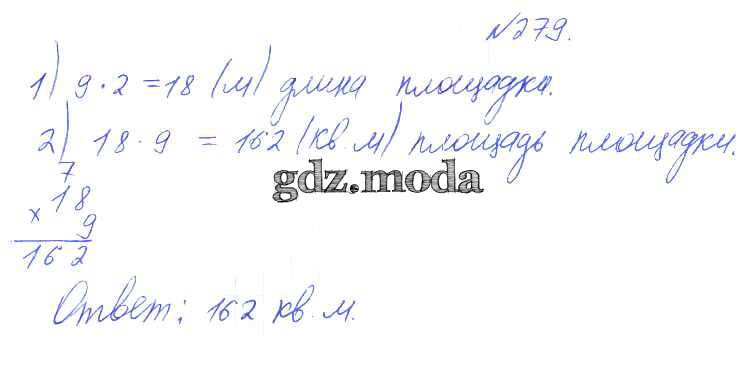 №279.
1) 9·2=18 (м) длина площадки.
2) 18·9 = 162 (кв.м) площадь площадки.
gdz.moda
7
18
× 9
162
Ответ: 162 кв.м.